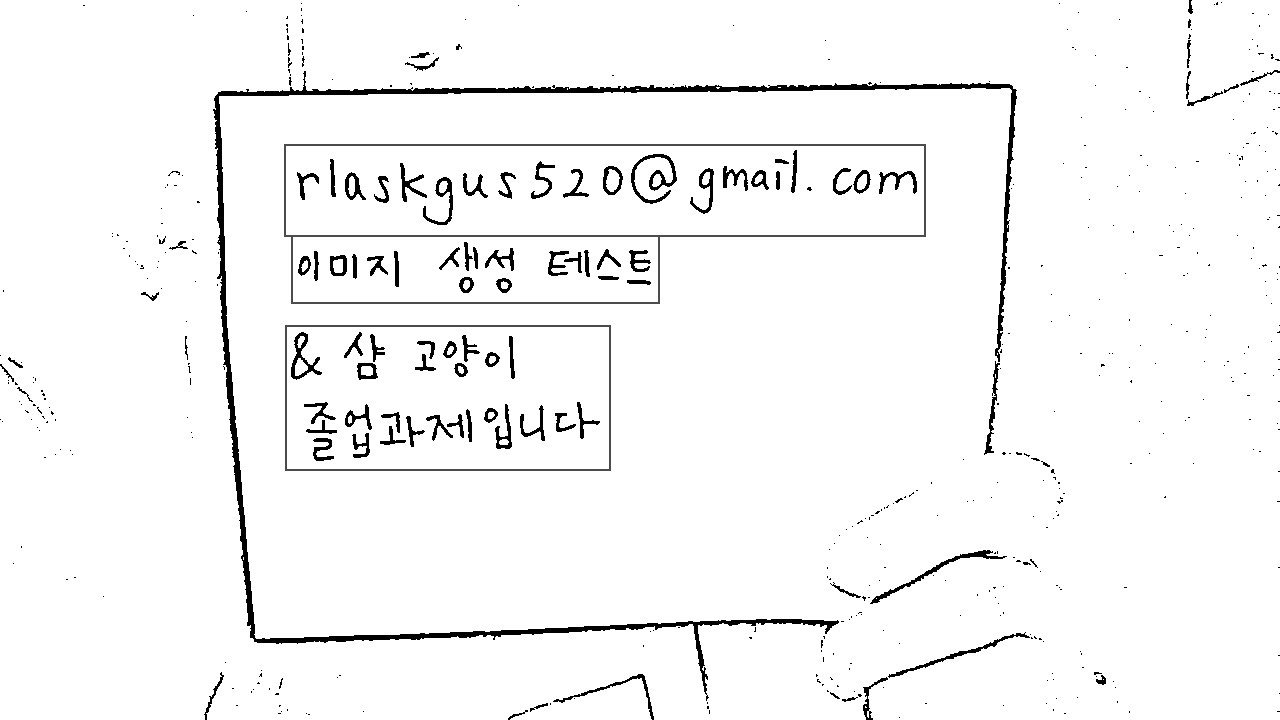 rlaskgus520@gmail.com
이미지 생성 테스트
& 샴 고양이
졸업과제입니다